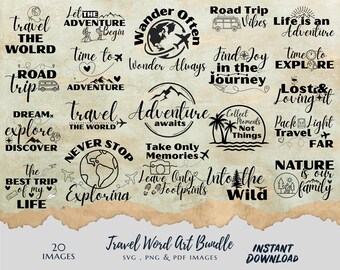 Travel
THE WOLRD
Let THE
ADVENTURE
Begin
Wander Often
Wander Always
Road Trip
Vibes
Life is an
Adventure
ROAD
TRIP
Time to
ADVENTURE
Find Joy
in the
Journey
Time to
EXPLORE
Lost &
Loving it
DREAM
explore
DISCOVER
Travel
THE WORLD
Adventure
awaits
Collect
Moments
Not
Things
Pack Light
Travel
FAR
THE BEST
TRIP
of my
LIFE
NEVER STOP
Exploring
Take Only
Memories
Leave Only
Footprints
Into the
Wild
NATURE
is our
family
20
IMAGES
Travel Word Art Bundle
SVG , PNG & PDF IMAGES
INSTANT
DOWNLOAD